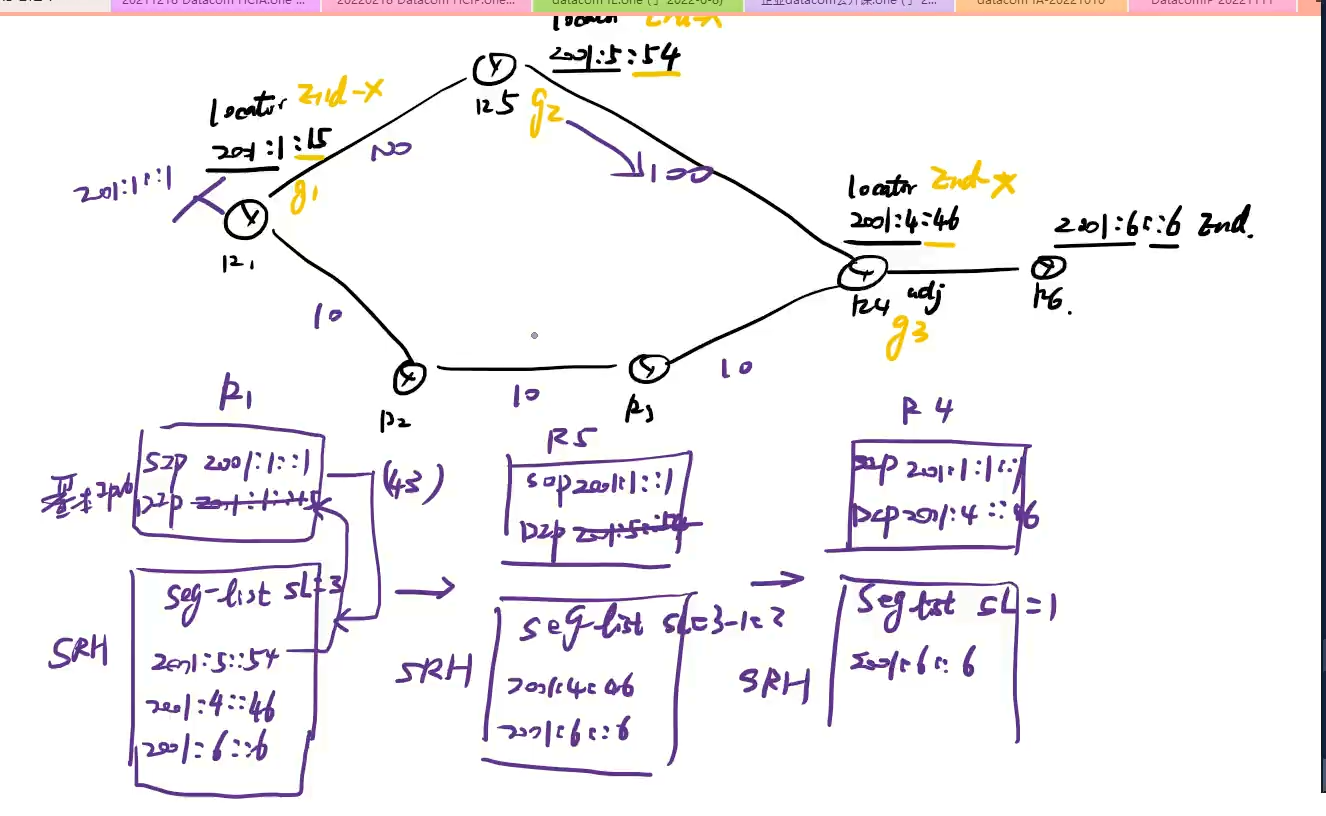 20211218 Datacom HCIA.one
20220218 Datacom HCIP.one...
datacom IE.one (于 2022-6-8)
企业datacom公开课.one (于 2...
datacom IA-20221010
DatacomIP 20221111
locator End-X
2001:5::54
R5
g2
locator End-X
2001:1::15
2001:1::1
g1
R1
20
100
locator End-X
2001:4::46
R4
adj
g3
2001:6::6 End.
R6.
10
R2
10
R3
10
R1
基本IPv6
SIP 2001:1::1
DIP
(43)
SRH
Seg-list SL=3
2001:5::54
2001:4::46
2001:6::6
R5
SIP 2001:1::1
DIP 2001:5::54
SRH
Seg-list SL=3-1=2
2001:4::46
2001:6::6
R4
SIP 2001:1::1
DIP 2001:4::46
SRH
Seg list SL=1
2001:6::6